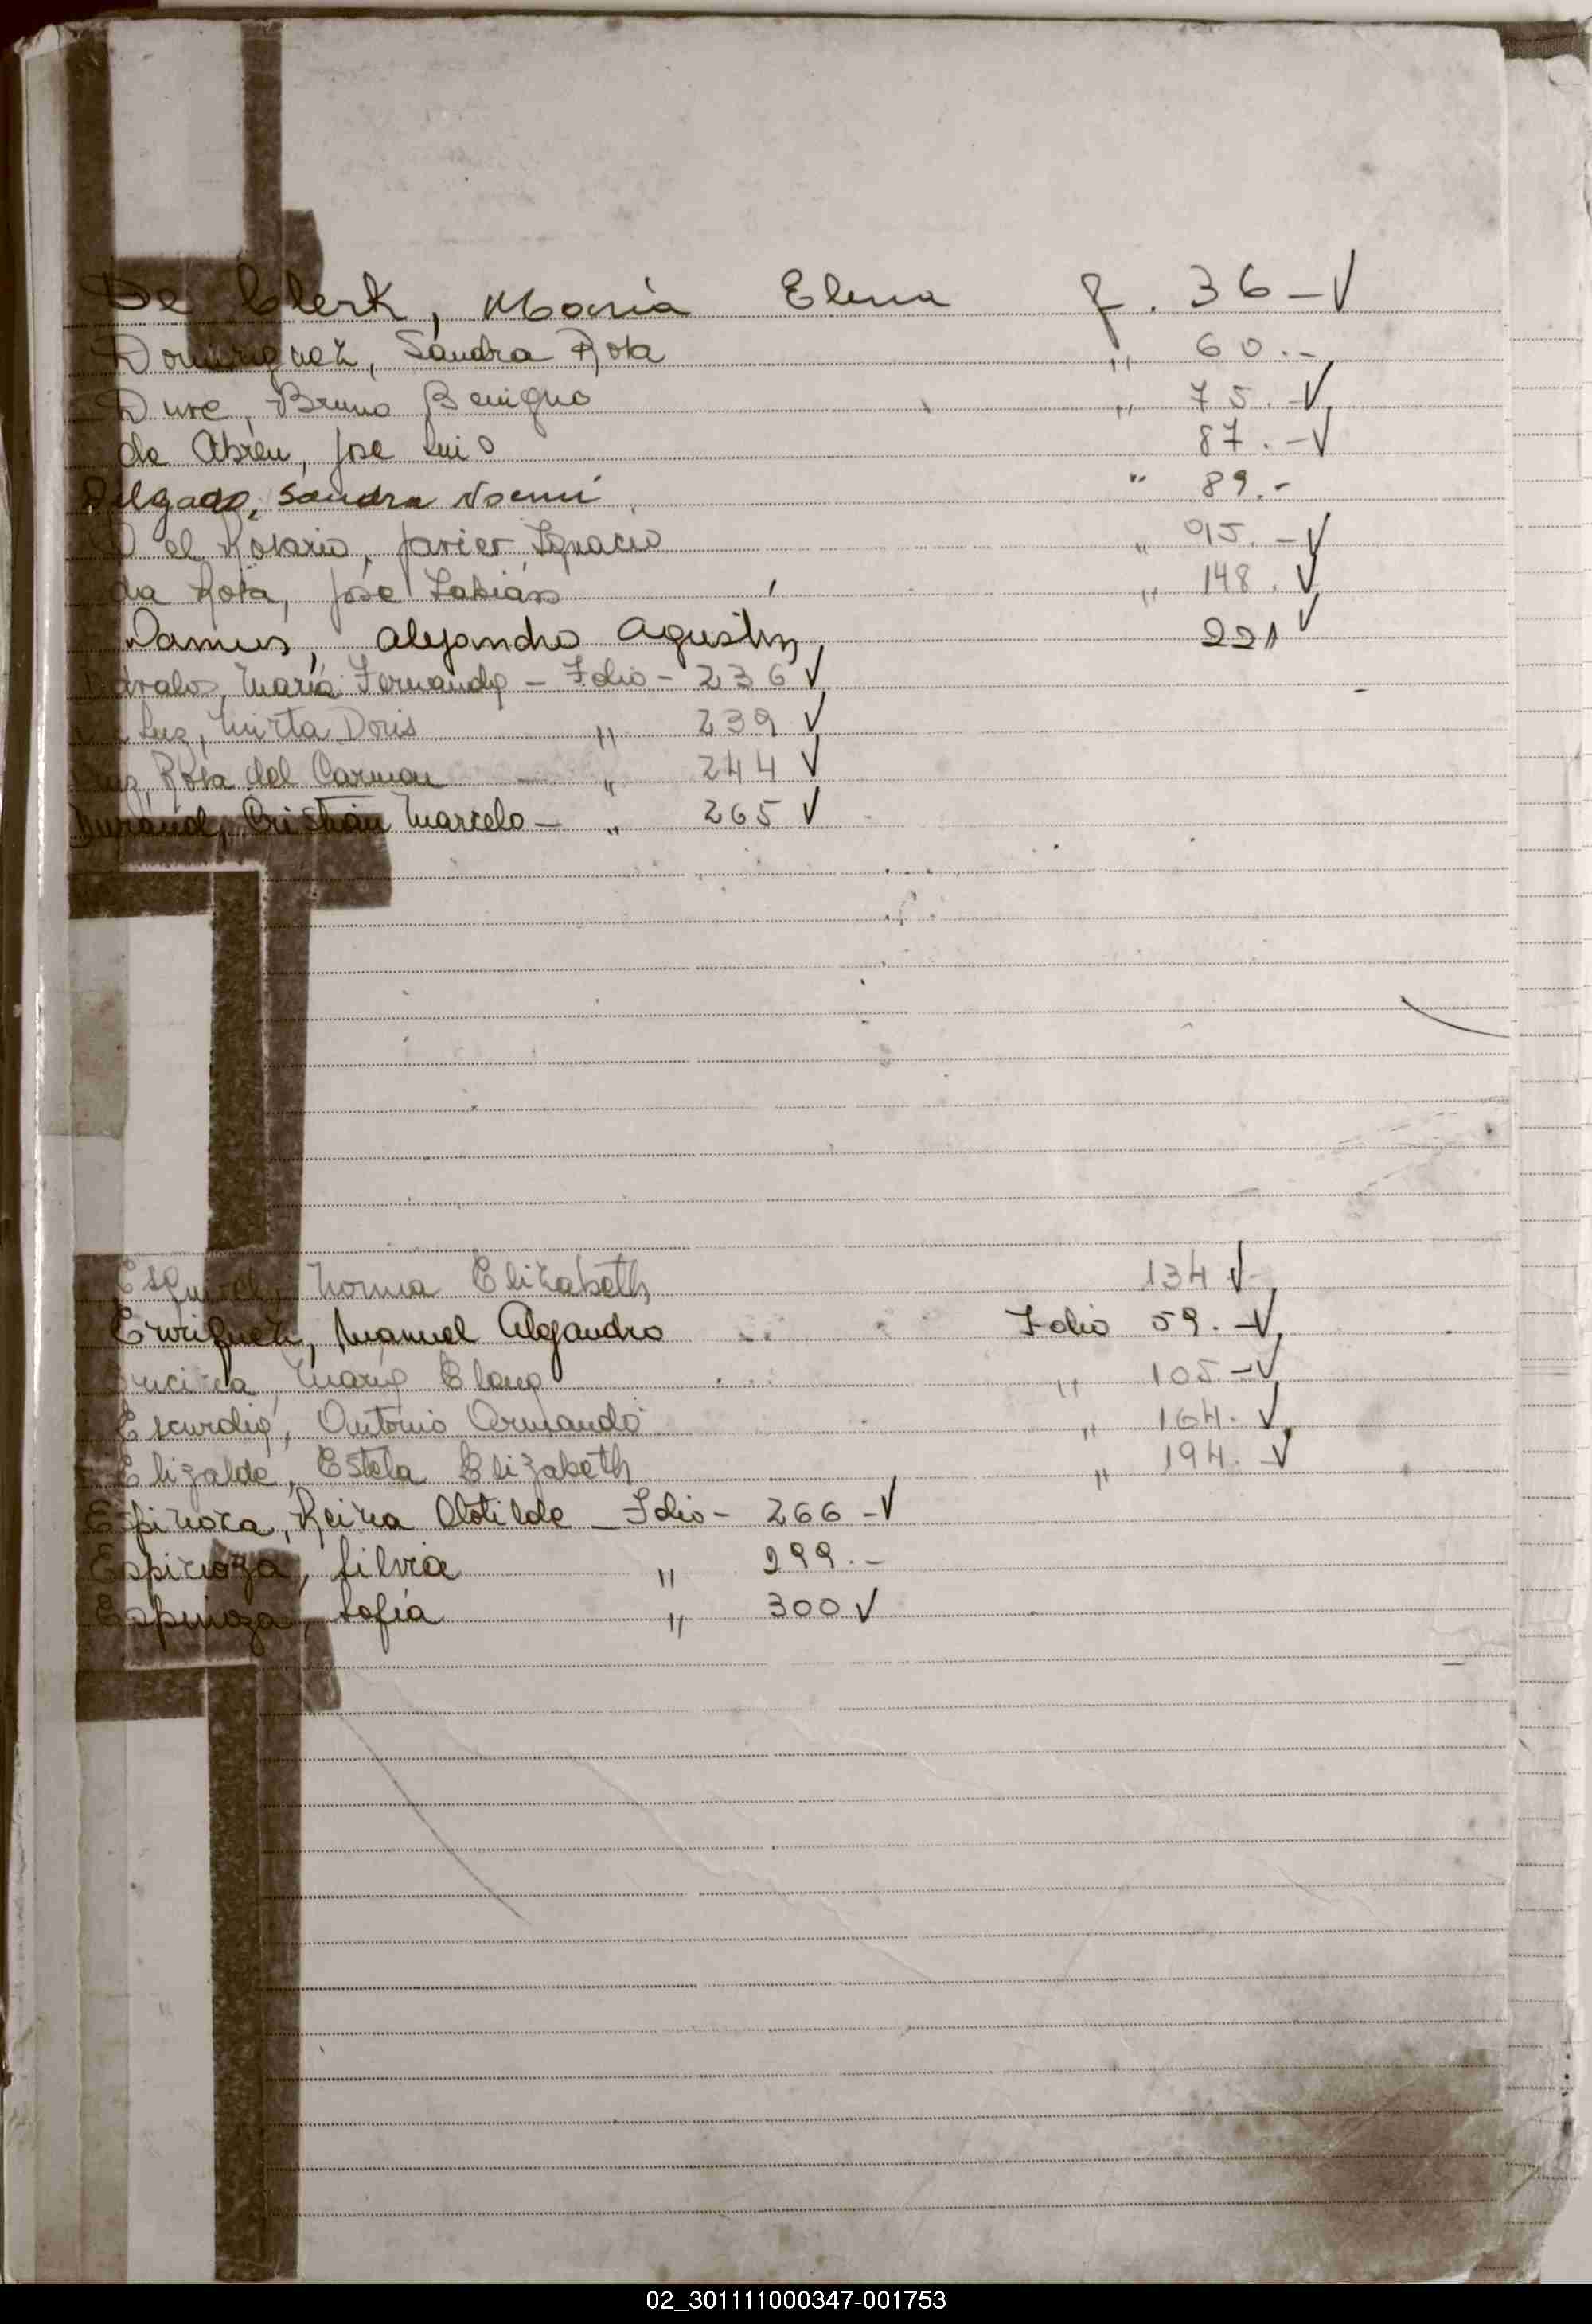 De Clerk, María Elena f. 36 - √
Dominguez, Sandra Rosa " 60.-
Dure, Bruno Benigno " 75. - √
de Abreu, Jose Luis 87. - √
Delgado, Sandra Noemí " 89.-
Del Rosario, Javier Ignacio " 95. - √
da Rosa, José Fabián " 148. √
Damus, Alejandro Agustín 221 √
Dávalos, María Fernanda - Folio - 236 √
Luz, Mirta Doris " 239 √
Rosa del Carmen " 244 √
Durand, Cristián Marcelo - " 265 √
Esquivel, Norma Elizabeth 134 √
Enriquez, Manuel Alejandro Folio 59. - √
Encina, María Elena " 105. - √
Escurdia, Antonio Armando " 164. √
Elizalde, Estela Elizabeth " 194. √
Espinoza, Reina Clotilde - Folio - 266 - √
Espinoza, Silvia " 299.-
Espinoza, Sofía " 300 √
02_301111000347-001753